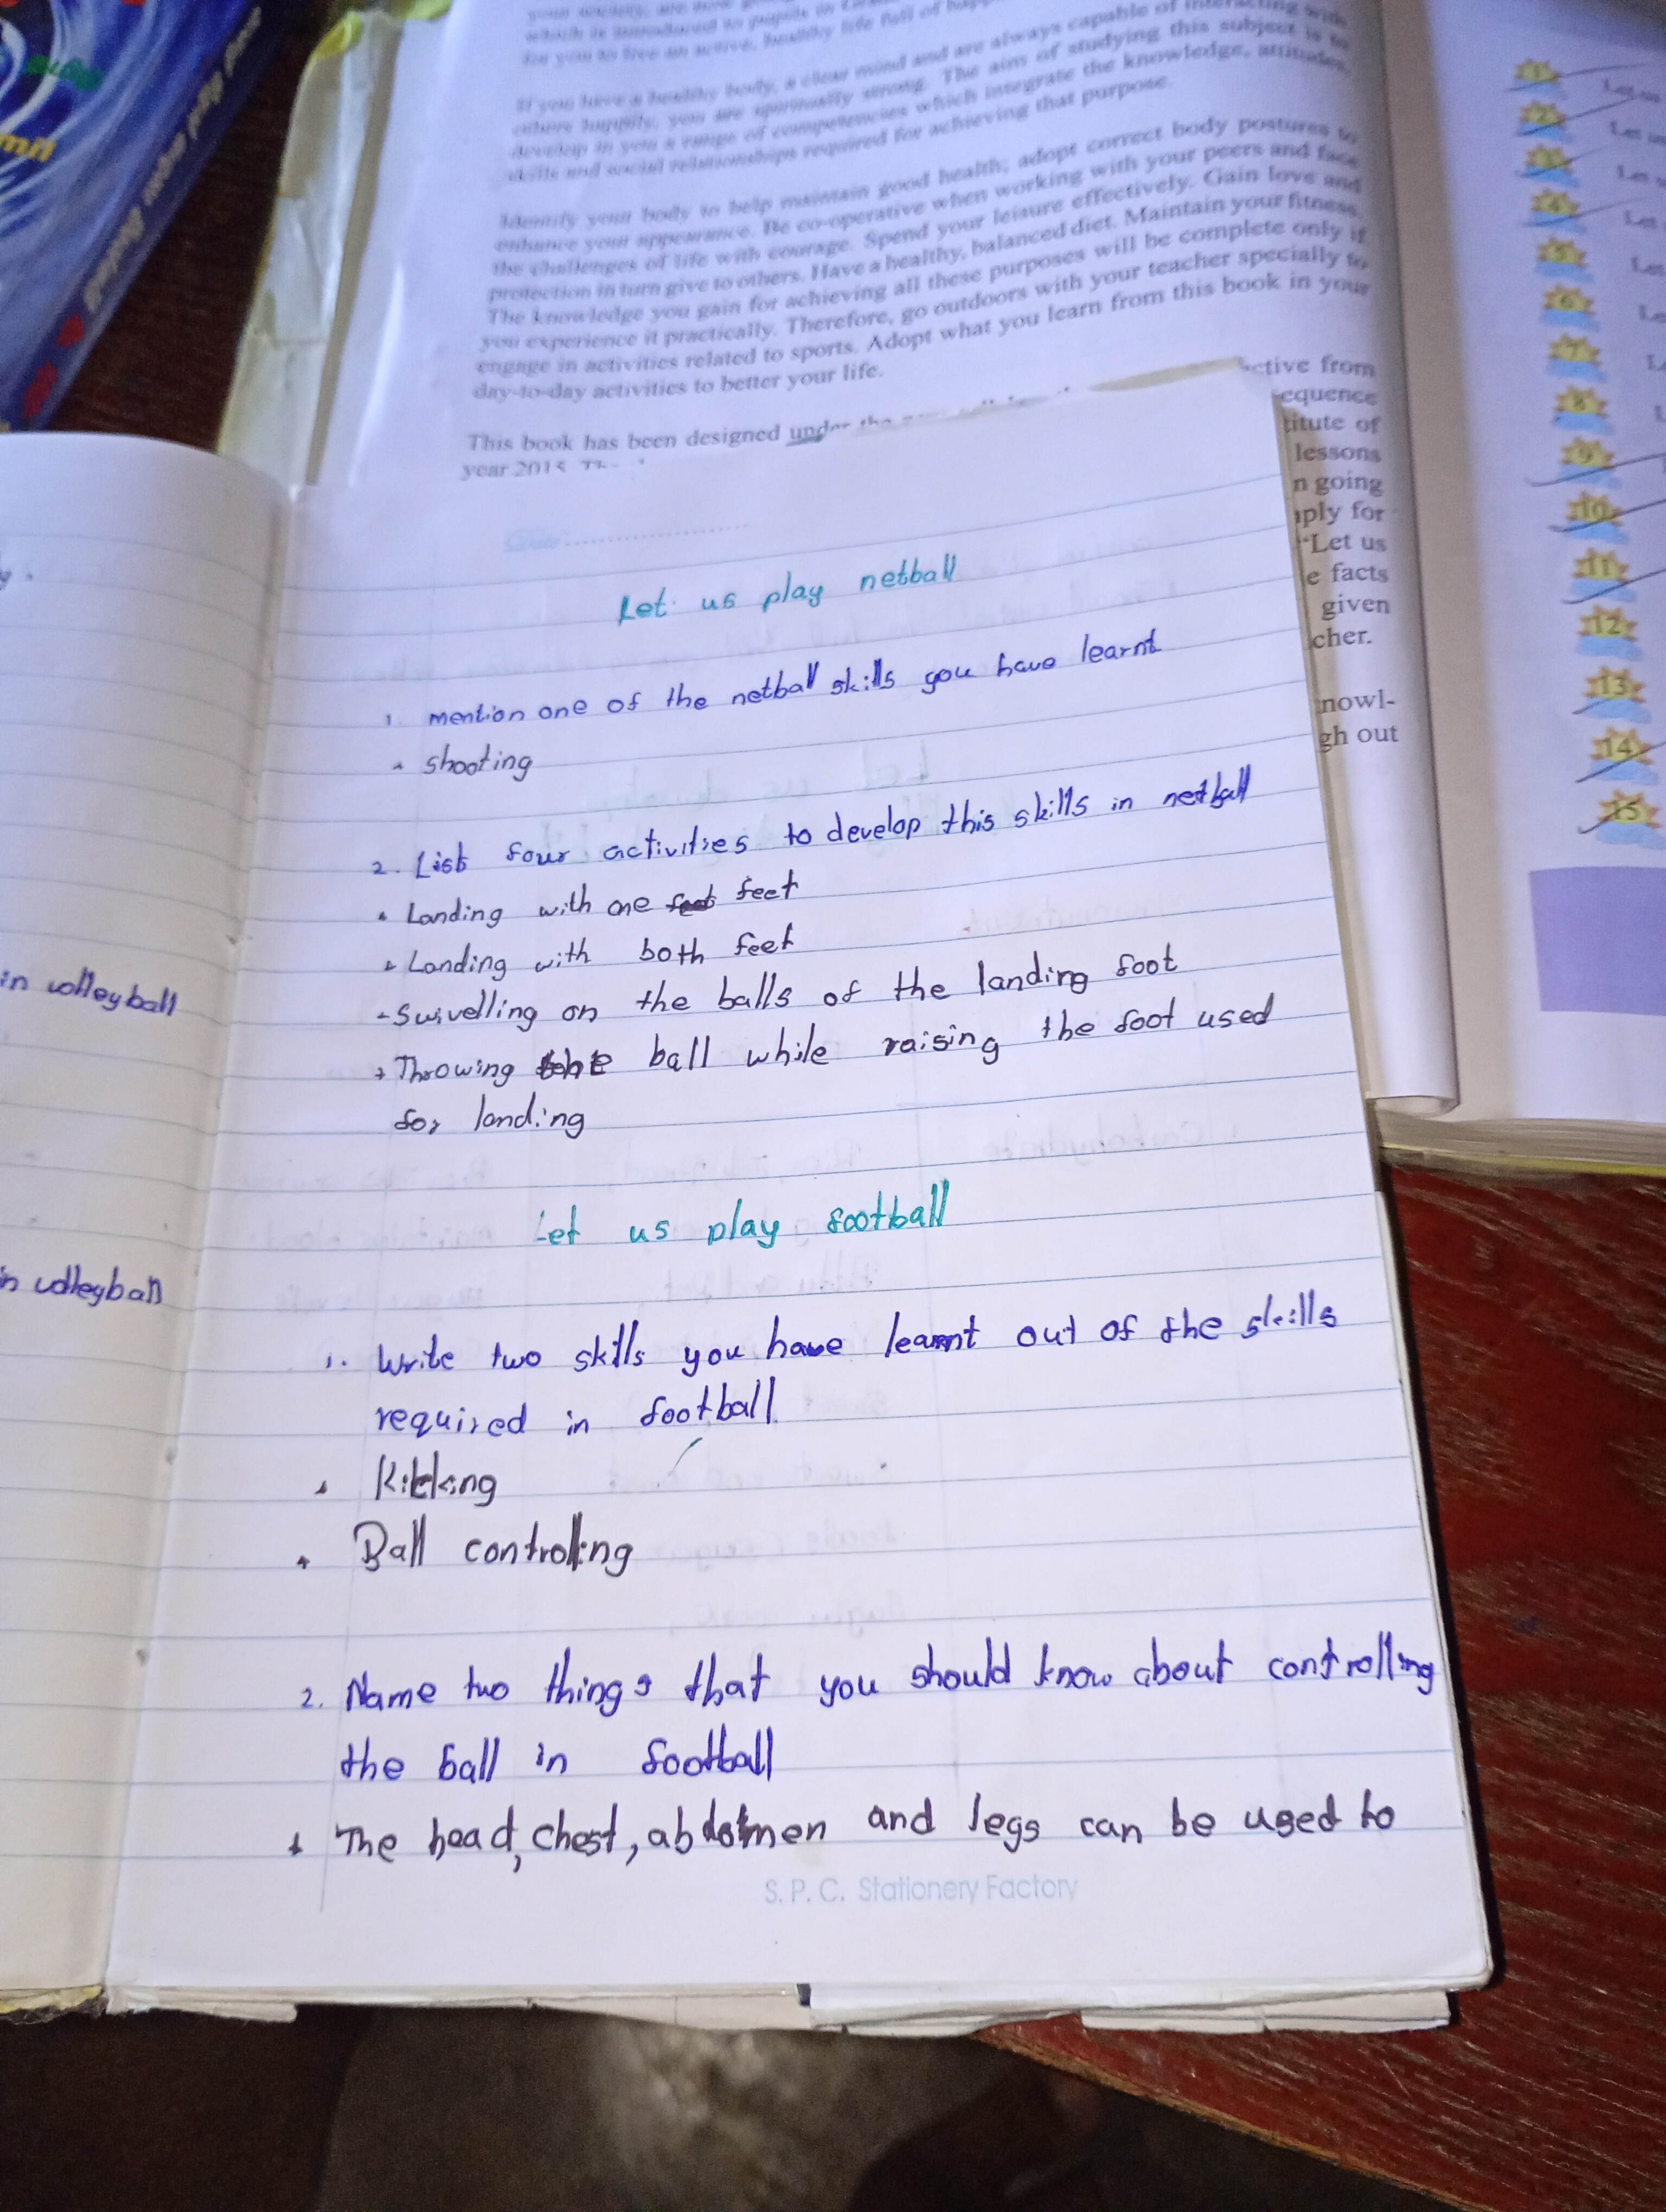 others happily, you are spiritually strong. The aim of studying this subject is to
develop in you a range of competencies which integrate the knowledge, attitudes,
skills and social relationships required for achieving that purpose.
Identify your body to help maintain good health; adopt correct body postures to
enhance your appearance. Be co-operative when working with your peers and face
the challenges of life with courage. Spend your leisure effectively. Gain love and
protection in turn give to others. Have a healthy, balanced diet. Maintain your fitness.
The knowledge you gain for achieving all these purposes will be complete only if
you experience it practically. Therefore, go outdoors with your teacher specially to
engage in activities related to sports. Adopt what you learn from this book in your
day-to-day activities to better your life.
This book has been designed under the
year 2015
ctive from
equence
titute of
lessons
n going
ply for
"Let us
e facts
given
cher.
nowl-
gh out
1
2
3
4
5
6
7
8
9
10
11
12
13
14
15
in volleyball
in volleyball
Date
Let us play netball
1. mention one of the netball skills you have learnt
shooting
2. List four activities to develop this skills in netball
Landing with one feet
Landing with both feet
Swivelling on the balls of the landing foot
Throwing the ball while raising the foot used
for landing
Let us play football
1. Write two skills you have learnt out of the skills
required in football
Kicking
Ball controlling
2. Name two things that you should know about controlling
the ball in football
The head, chest, abdomen and legs can be used to
S. P. C. Stationery Factory